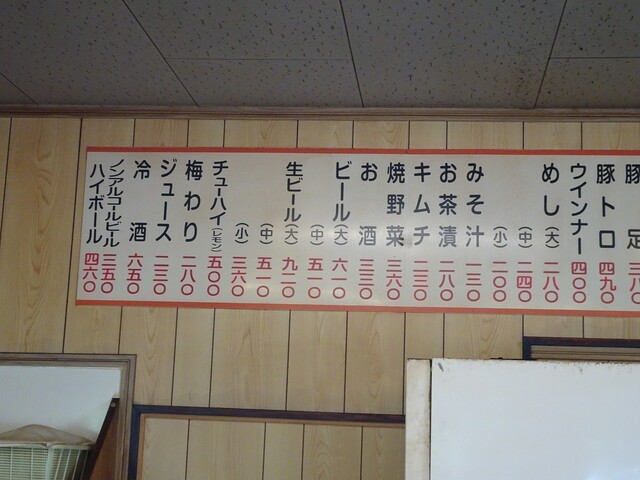 豚足 三八〇
豚トロ 四九〇
ウインナー 四〇〇
めし(大) 二八〇
(中) 二四〇
(小) 二〇〇
みそ汁 一三〇
お茶漬 二八〇
キムチ 二三〇
焼野菜 三六〇
お酒 三三〇
ビール(大) 六一〇
(中) 五一〇
生ビール(大) 九一〇
(中) 五一〇
(小) 三六〇
チューハイ(レモン) 五〇〇
梅わり 二八〇
ジュース 二三〇
冷酒 六五〇
ノンアルコールビール 三五〇
ハイボール 四六〇